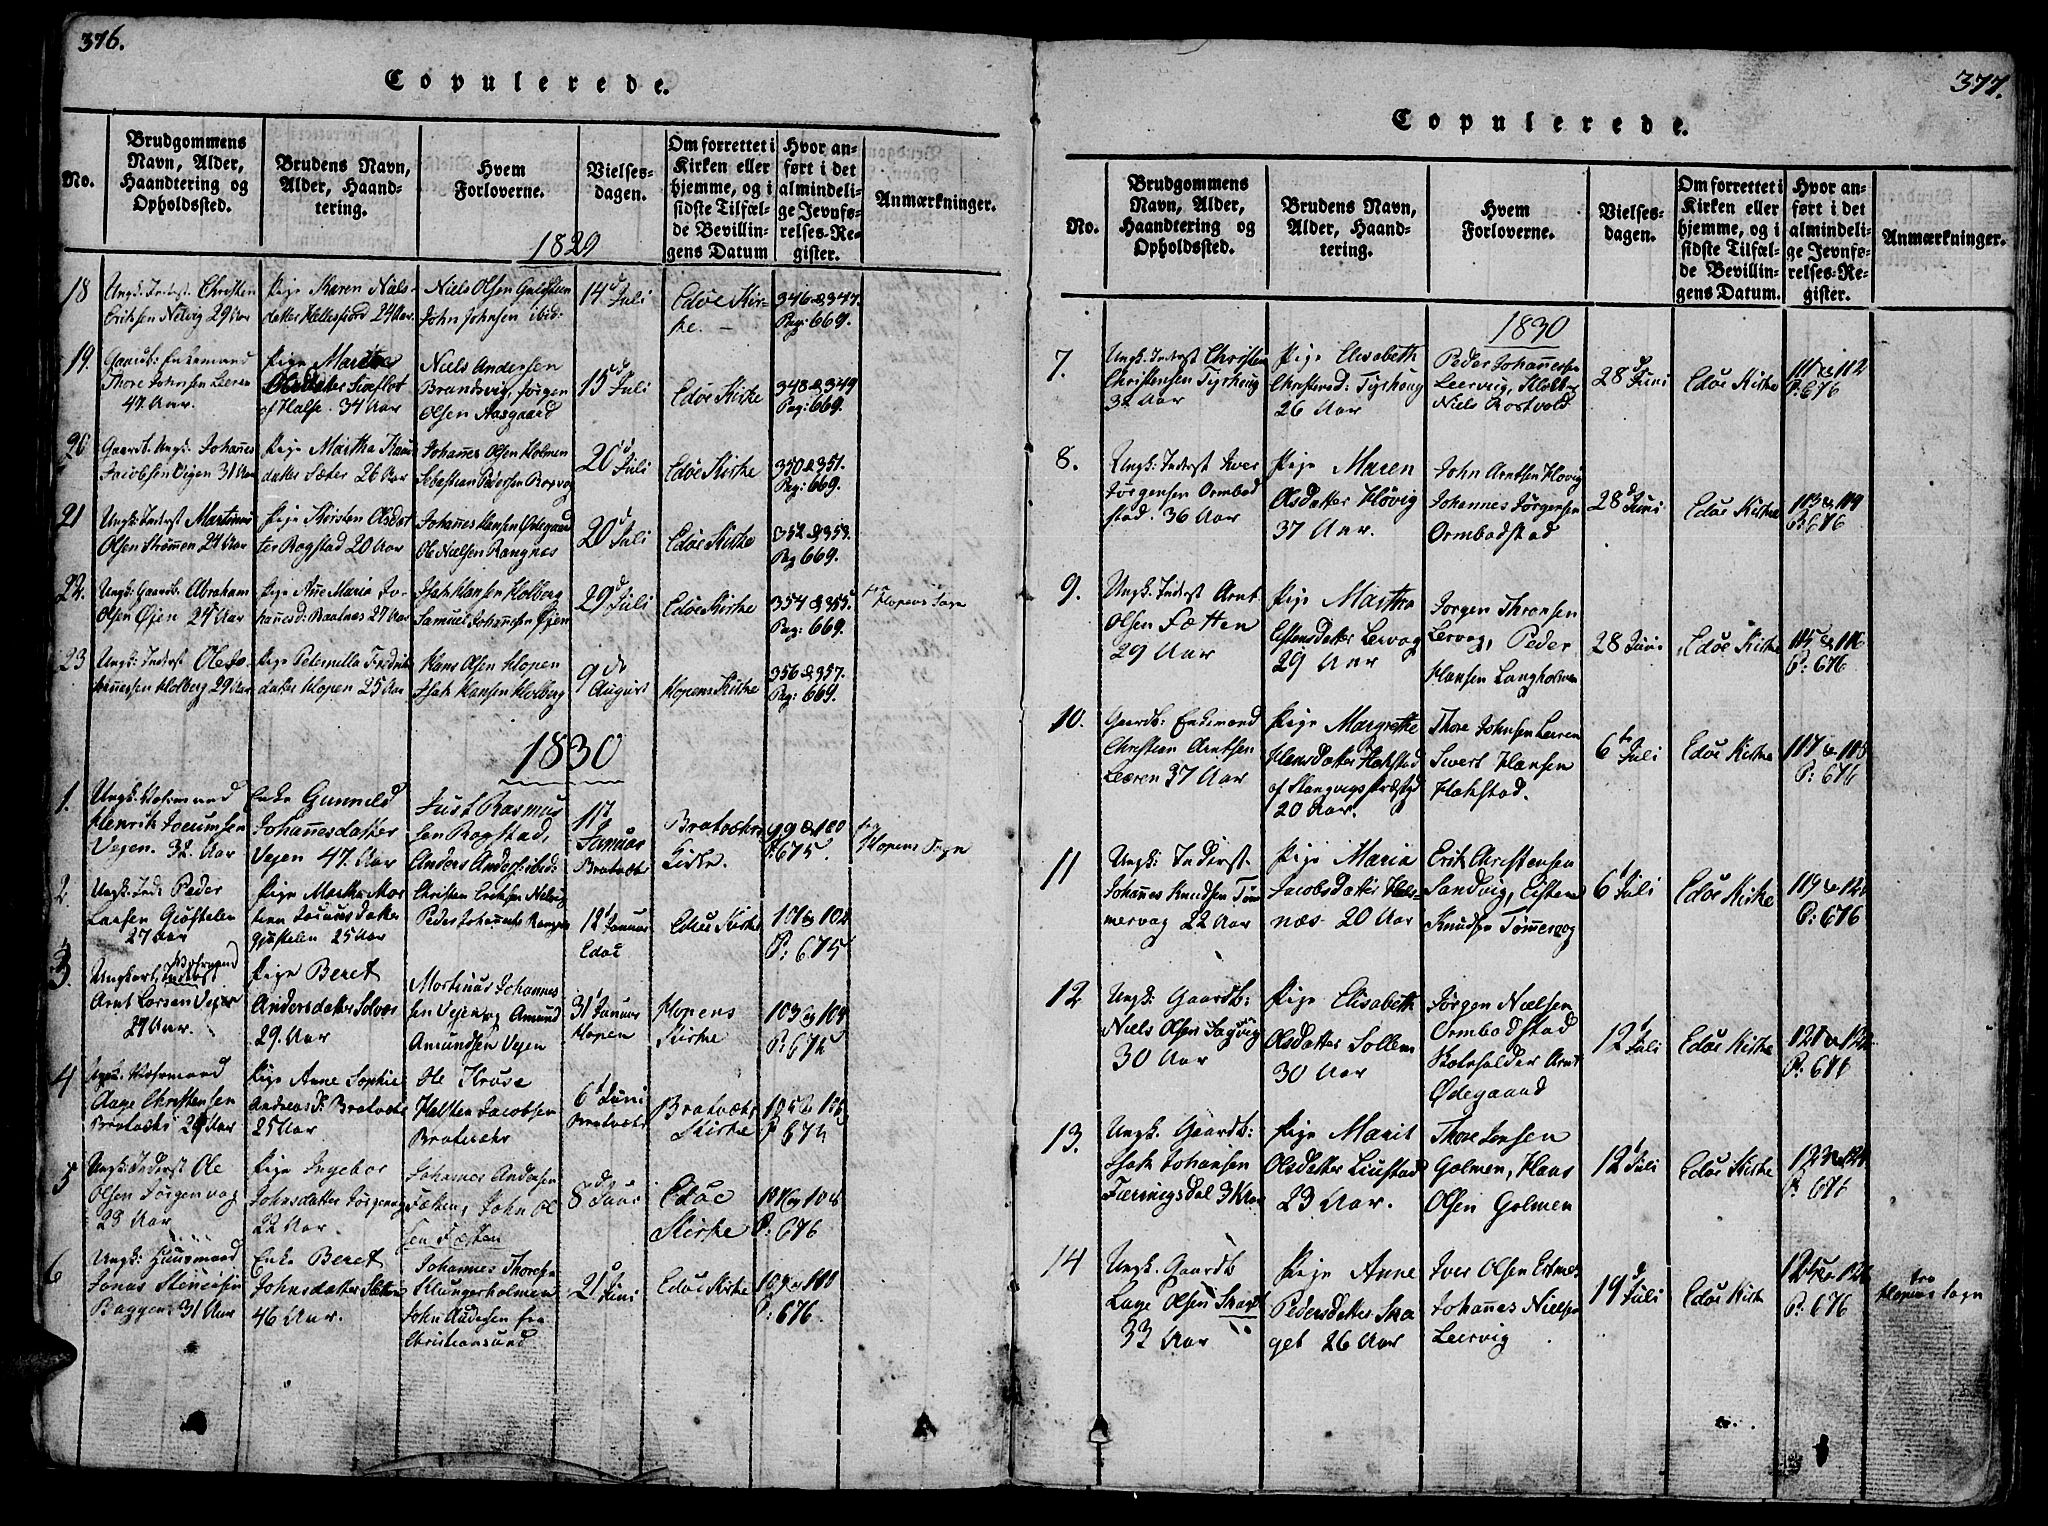 376.
Copulerede.
No.
Brudgommens
Navn, Alder,
Haandtering og
Opholdssted.
Brudens Navn,
Alder, Haand-
tering.
Hvem
Forloverne.
Vielses-
dagen.
Om forrettet i
Kirken eller
hjemme, og i
sidste Tilfæl-
de Bevillin-
gens Datum
Hvor an-
ført i det
almindeli-
ge Jevnfø-
relses-Re-
gister.
Anmærkninger.
1829
18
Ungk: Inderst. Christen
Eriksen Nelvig 29 Aar
Pige Karen Niels-
datter Hellesfiord 24 Aar
Niels Olsen
John Johnsen ibid:
14 d Juli
Edøe Kir-
ke.
346 & 347.
Pag: 669.
19.
Gaardb: Enkemand
Thore Johnsen Leeren
47 Aar.
Pige
af Halse. 34 Aar
Niels Andersen
Brandsvig, Jørgen
Olsen Aasgaard
15 d Juli
Edøe Kirke
348 & 349
Pag: 669.
20
Gaardb. Ungk: Johannes
Jacobsen 31 Aar
Pige Martha
datter Sæter 26 Aar
Johannes Olsen Holmen
Sebastian Pedersen
20 d Juli
Edøe Kirke
350 & 351.
Pag: 669.
21
Ungk: Inderst Martinus
Olsen Strømen 24 Aar
Pige Kirsten Olsdat-
ter Rogstad 20 Aar
Johannes Hansen Ødegaard
Ole Nielsen Rangnæs
20 d Juli
Edøe Kirke
352 & 353.
Pag 669.
22.
Ungk: Gaardb. Abraham
Olsen Øyen 24 Aar
Pige Ane Maria Jo-
hannesd: 27 Aar
Isak Hansen Holberg
Samuel Johannesen Øyen
29 d Juli
Edøe Kirke
354 & 355.
Pag: 669.
fra
Hopens Sogn
23
Ungk: Inderst Ole Jo-
hannessen Holberg 29 Aar
Pige Peternilla Fredrik
datter Hopen 25 Aar
Hans Olsen Hopen
Isak Hansen Holberg
9 de
August
Hopens Kirke
356 & 357.
Pag: 669.
1830
1.
Ungk:
Henrik Jocumsen
Vejen. 32. Aar
Enke Gunnild
Johannesdatter
Vejen 47 Aar
Just Rasmus
sen Rogstad,
Anders Anders: ibid:
17
Januar
Bratvær
Bratværs
Kirke.
99 & 100
P: 675.
fra
Hopens Sogn
2.
Ungk: Ind: Peder
Larsen Giøstelen
27 Aar
Pige Martha Mar
datter
Gjøstelen 25 Aar
Christen Eriksen Nelvig
Peder
12 Januar
Edøe
Edøe Kirke
101 & 102
P: 675
3.
Arnt Larsen Vejen
27 Aar.
Pige Beret
Andersdatter
29. Aar
Martinus Johannes
sen Vejen og Amund
Amundsen Vejen
31 Januar
Hopen
Hopens
Kirke
103 & 104
P: 675
4
Aage Christensen
Bratvær 29 Aar
Pige Anne Sophie
Andreas D: Bratvær
25 Aar.
Ole Kruse
Halsten Jacobsen
Bratvær
6 Juni
Bratvær
Bratværs
Kirke
105 & 106
P 675
5
Ungk: Inderst Ole
Olsen Jørgenvog
23 Aar
Pige Ingebor
Johnsdatter Jørgenvog
22 Aar.
Johannes Andersen
Fætten, John Ol
sen Fætten
8 d
Edøe
Kirke
107 & 108
P: 676
6
Ungk: Huusmand
Jonas Steneisen
Baggen: 31 Aar
Enke Beret
Johnsdatter
46 Aar.
Johannes Thoresen
Klungerholmen
John Andersen fra
Christiansund
21 Juni
Edøe Kirke
109 & 110
P: 676.
377.
Copulerede.
No.
Brudgommens
Navn, Alder,
Haandtering og
Opholdssted.
Brudens Navn,
Alder, Haand-
tering.
Hvem
Forloverne.
Vielses-
dagen.
Om forrettet i
Kirken eller
hjemme, og i
sidste Tilfæl-
de Bevillin-
gens Datum.
Hvor an-
ført i det
almindeli-
ge Jevnfø-
relses-Re-
gister.
Anmærkninger.
1830
7.
Ungk: Inderst Christen
Christensen Tyrhoug
Aar
Pige Elisabeth
Christensd: Tyrhoug
26 Aar
Peder Johannessen
Leervig,
Niels Rostvold
28 d Juni
Edøe Kirke
111 & 112
P: 676
8.
Ungk: Inderst Iver
Jørgensen Ormbod
stad. 36 Aar
Pige Maren
Olsdatter Høvig
37 Aar.
John Arntsen Høvig
Johannes Jørgensen
Ormbodstad
28 d Juni
Edøe Kirke
113 & 114
P: 676
9.
Ungk: Inderst Arnt
Olsen Fætten
29 Aar
Pige Martha
Estensdatter Lervog
29 Aar
Jørgen Thronsen
Lervog, Peder
Hansen Langholmen
28 Juni
Edøe Kirke
115 & 116
P: 676
10.
Gaardb: Enkemand
Christian Arntsen
Leeren 37 Aar
Pige Margrethe
Hansdatter Halstad
af Stangvigs Præstgd
20 Aar.
Thore Johnsen Leeren
Sivert Hansen
Halstad.
6 te Juli
Edøe Kirke
117 & 118
P: 676
11
Ungk: Inderst
Johannes Knudsen Tøm
mervog 22 Aar
Pige Maria
Jacobsdatter Hals-
næs 20 Aar
Erik Christensen
Sandvig, Eisten
Knudsen Tømmervog
6 Juli
Edøe Kirke
119 & 120
P: 676
12
Ungk: Gaardb:
Niels Olsen Sagvig
30 Aar
Pige Elisabeth
Olsdatter Sollem
30 Aar
Jørgen Nielsen
Ormbodstad
Arnt
Ødegaard
12 Juli
Edøe Kirke
121 & 122
P: 676
13.
Ungk. Gaardb:
Isak Johansen
Færringsdal Aar
Pige Marit
Olsdatter Liustad
23 Aar.
Thore Jensen
Golmen, Haas
Olsen Golmen
12 Juli
Edøe Kirke
123 & 124
P: 676
14
Ungk. Gaardb
Lage Olsen Skaget
33 Aar
Pige Anne
Pedersdatter Ska
get 26 Aar
Iver Olsen Edenes
Johannes Nielsen
Leervig
19 d Juli
Edøe Kirke
125 & 126
P: 676
fra
Hopens Sogn